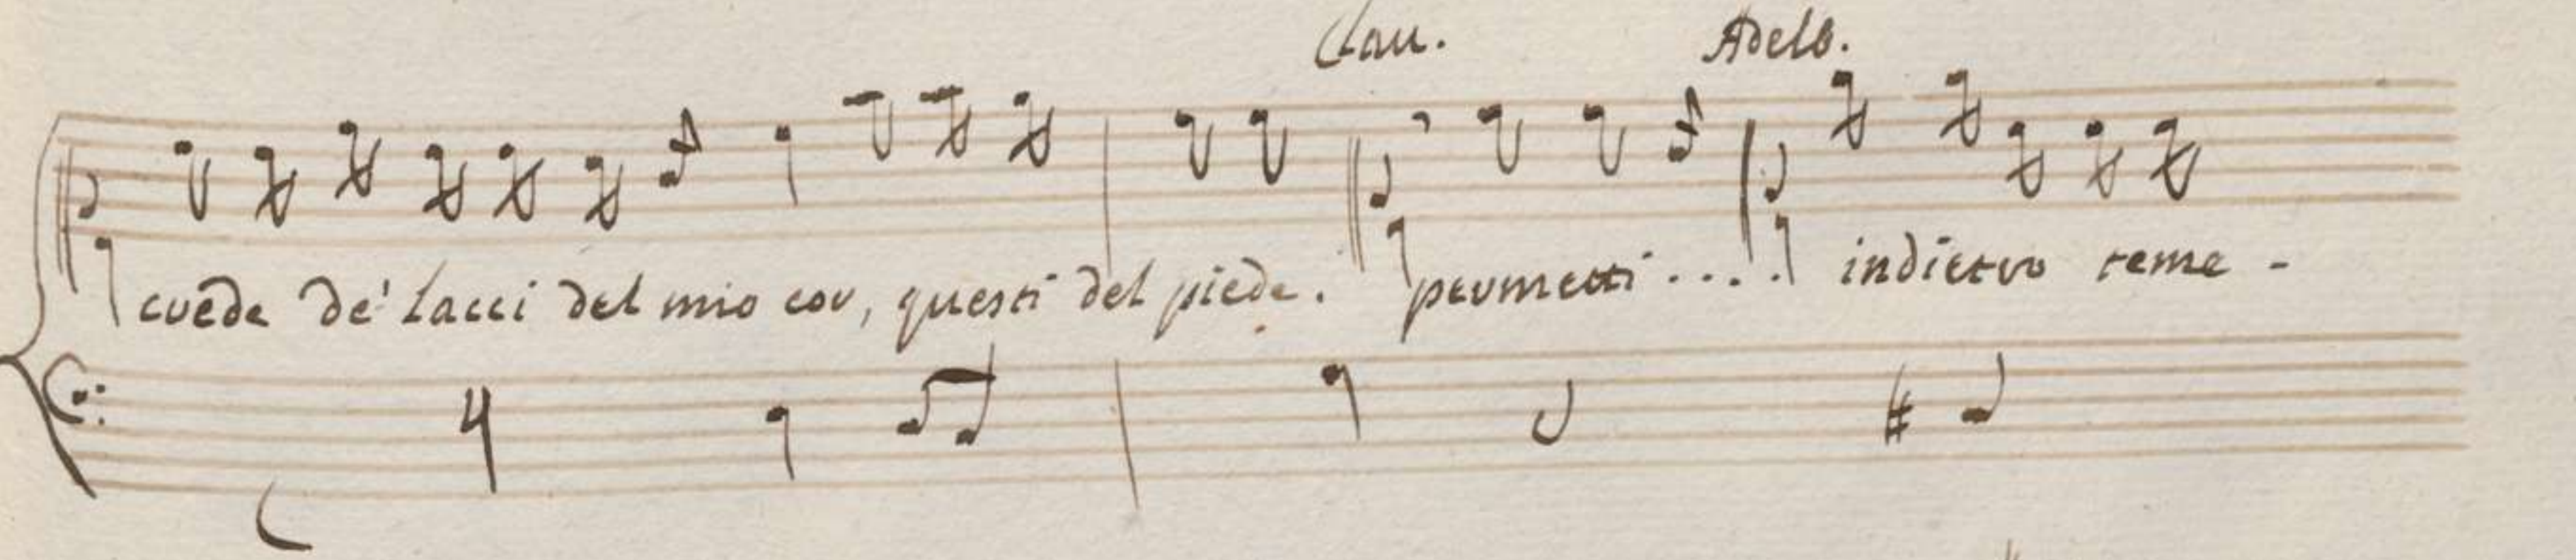 Clau. Adelb.
crede de' lacci del mio cor, questi del piede. permetti .... indietro teme -